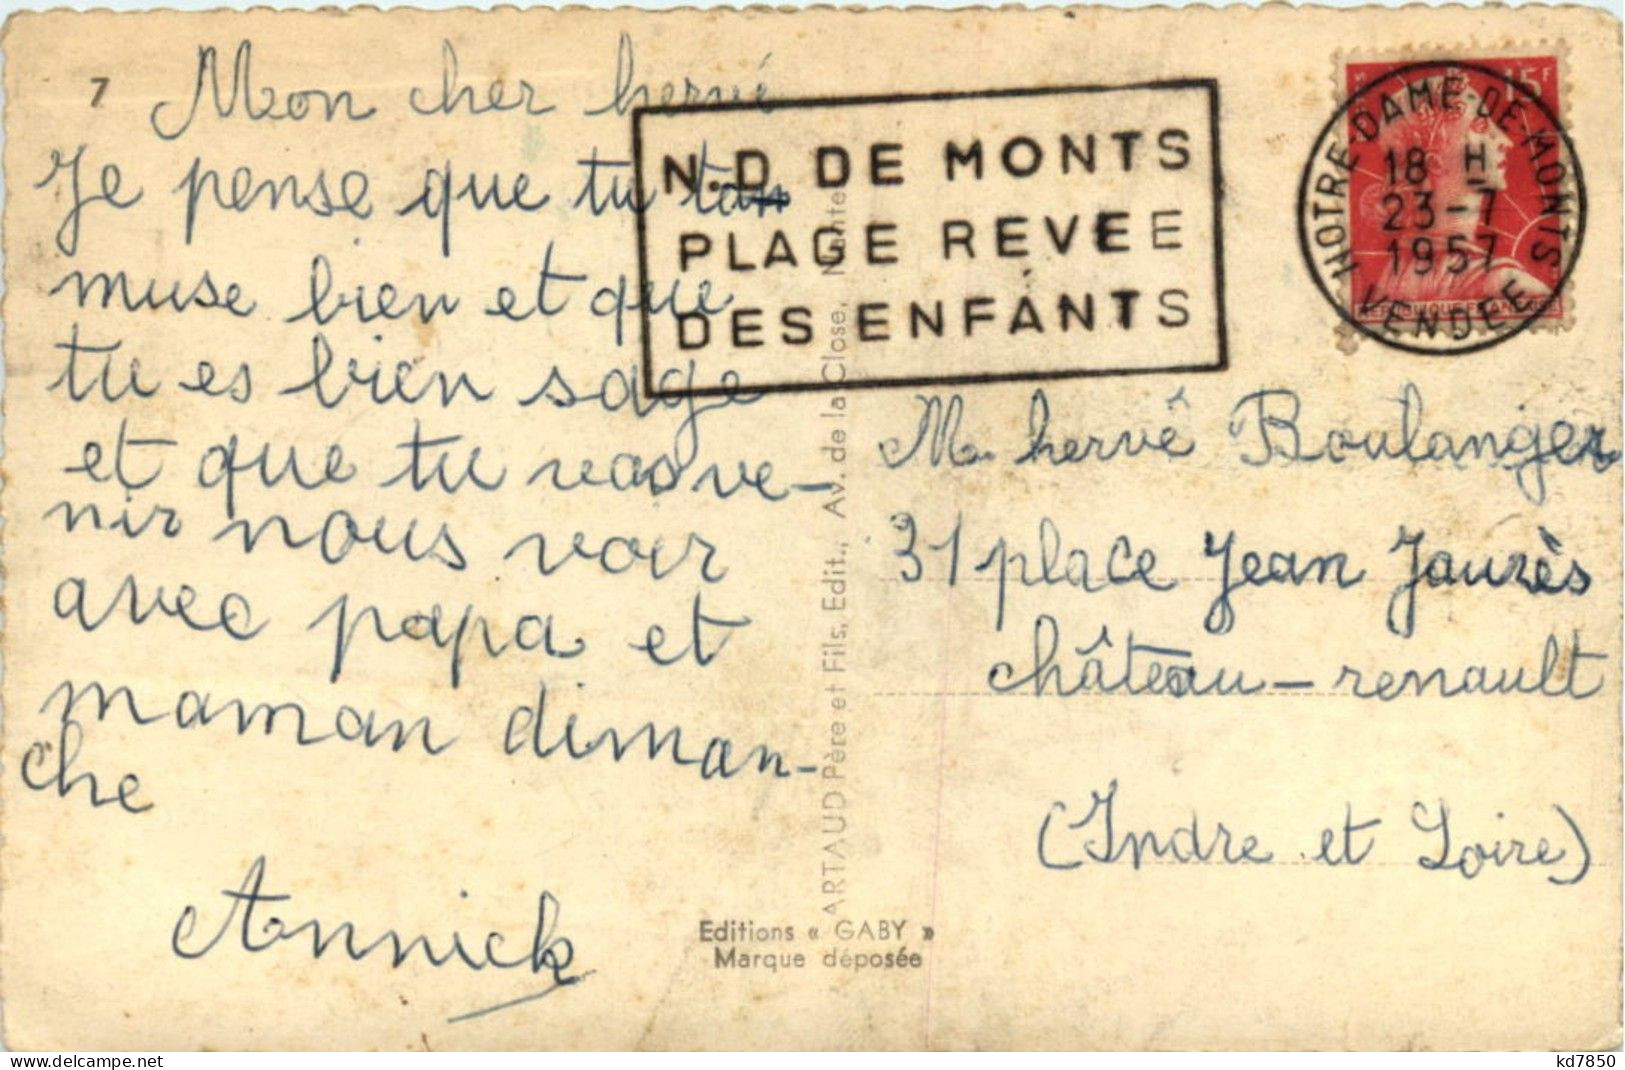 7
Mon cher hervé
Je pense que tu ta
muse bien et que
tu es bien sage
et que tu vas ve-
nir nous voir
avec papa et
maman diman-
che
Annick
N.D DE MONTS
PLAGE REVEE
DES ENFANTS
15F
NOTRE-DAME-DE-MONTS
18 H
23-7
1957
VENDEE
M. hervé Boulanger
31 place Jean Jaurès
château-renault
(Indre et Loire)
ARTAUD Père et Fils, Edit., Av. de la Close, Nantes
Editions « GABY »
Marque déposée
kd7850